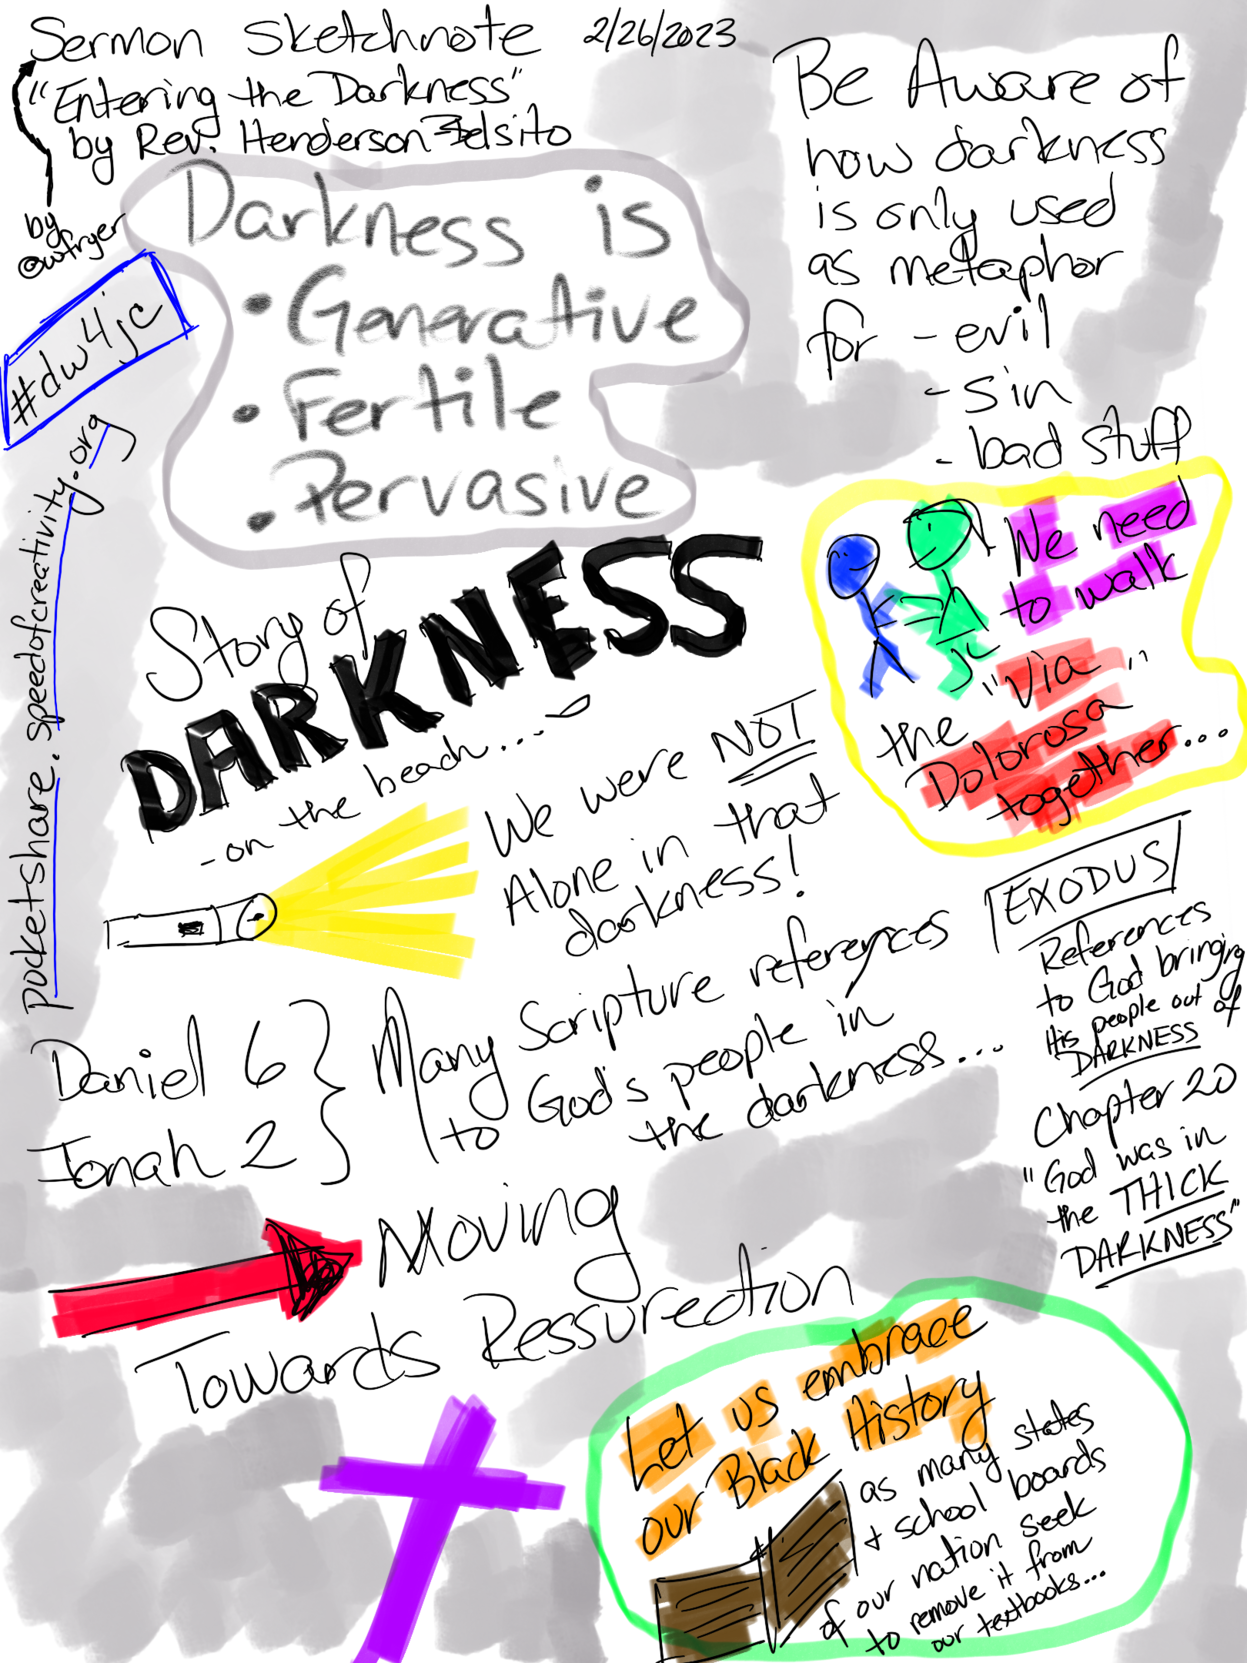 Sermon Sketchnote 2/26/2023
"Entering the Darkness"
by Rev. Henderson
by
@wfryer
#dw4jc
pocketshare.speedofcreativity.org
Darkness is
• Generative
• Fertile
• Pervasive
Be Aware of
how darkness
is only used
as metaphor
for - evil
- sin
- bad stuff
We need
to walk
the "Via
Dolorosa"
together...
Story of
DARKNESS
- on the beach....
We were NOT
Alone in that
darkness!
EXODUS
References
to God bringing
His people out of
DARKNESS
Chapter 20
"God was in
the THICK
DARKNESS"
Daniel 6
Jonah 2
Many Scripture references
to God's people in
the darkness...
Moving
Towards Ressurection
Let us embrace
our Black History
as many states
+ school boards
of our nation seek
to remove it from
our textbooks...